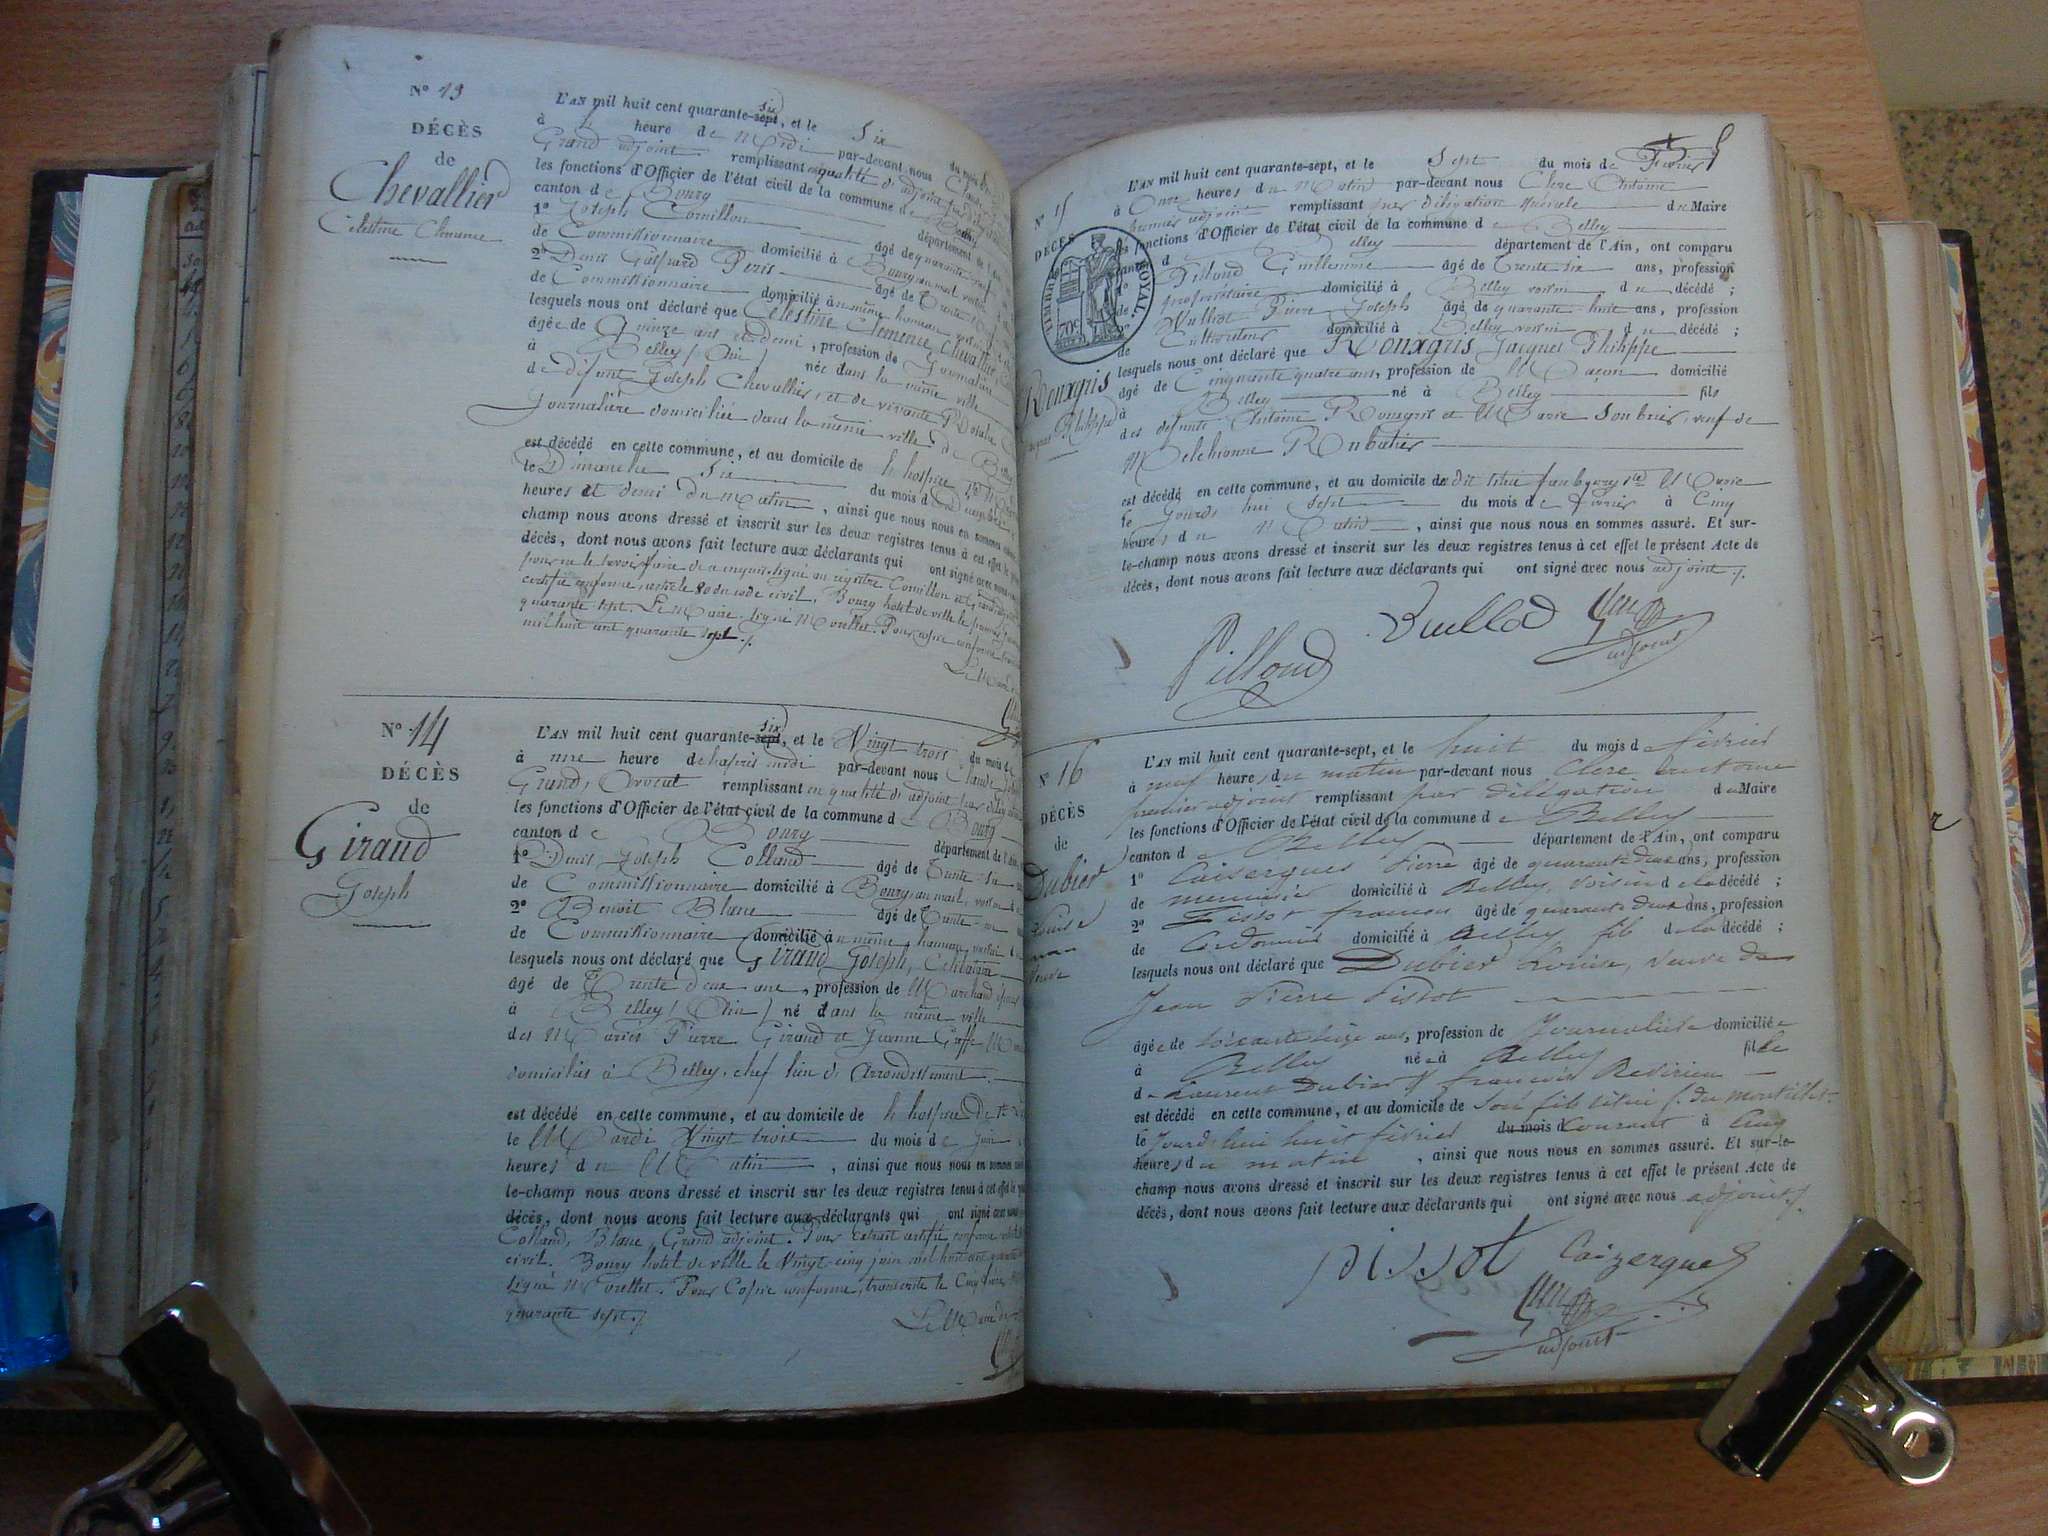 N° 13
DÉCÈS
de
Chevallier
Célestine Clémence
L'AN mil huit cent quarante-sept six, et le Six du mois
à heure de Midi par-devant nous
Grand adjoint remplissant en qualité d'adjoint
les fonctions d'Officier de l'état civil de la commune de Bourg
canton de Bourg département de
1° Joseph Cornillon âgé de quarante
de Commissionnaire domicilié à Bourg au mail, voisin
2° Denis Gaspard Peris âgé de trente
de Commissionnaire domicilié à
lesquels nous ont déclaré que Célestine Clémence Chevallier
âgée de Quinze ans et demi, profession de Journalière
à Belley (Ain) née dans la même ville
de défunt Joseph Chevallier, et de vivante Rosalie
Journalière domiciliée dans la même ville de
est décédé en cette commune, et au domicile de l'hospice
le Dimanche Six du mois de
heures et demi du Matin, ainsi que nous nous en sommes
champ nous avons dressé et inscrit sur les deux registres tenus à cet effet le
décès, dont nous avons fait lecture aux déclarants qui ont signé avec nous
pour ne le savoir faire de ce enquis. Signé au registre Cornillon et Grand
certifié conforme article 80 du code civil, Bourg hôtel de ville le premier
quarante sept. Le Maire, signé Morellet. Pour copie conforme
mil huit cent quarante sept ./.
Le Maire
N° 14
DÉCÈS
de
Giraud
Joseph
L'AN mil huit cent quarante-sept six, et le Vingt trois du mois de
à une heure de l'après midi par-devant nous Claude
Grand, Avocat remplissant en qualité d'adjoint par
les fonctions d'Officier de l'état civil de la commune de Bourg
canton de Bourg département de l'Ain
1° Denis Joseph Colland âgé de Trente six
de Commissionnaire domicilié à Bourg, au mail, voisin
2° Benoit Blanc âgé de Trente
de Commissionnaire domicilié au même hameau, voisin
lesquels nous ont déclaré que Giraud Joseph, Célibataire
âgé de Trente deux ans, profession de Marchand
à Belley (Ain) né dans la même ville
des Mariés Pierre Giraud et Jeanne
domiciliés à Belley, chef lieu d'Arrondissement.
est décédé en cette commune, et au domicile de l'hospice de
le Mardi Vingt trois du mois de Juin
heures du Matin, ainsi que nous nous en sommes
le-champ nous avons dressé et inscrit sur les deux registres tenus à cet effet le
décès, dont nous avons fait lecture aux déclarants qui ont signé avec nous
Colland, Blanc, Grand adjoint. Pour extrait certifié conforme
civil. Bourg hôtel de ville le Vingt cinq juin mil huit cent quarante
Signé Morellet. Pour Copie conforme, transcrite le Cinq
quarante sept ./.
Le Maire
N° 15
DÉCÈS
TIMBRE ROYAL
70c
Rouxgris
Jacques Philippe
L'AN mil huit cent quarante-sept, et le Sept du mois de Février
à Onze heures du Matin par-devant nous Clerc Antoine
premier adjoint remplissant par délégation spéciale du Maire
les fonctions d'Officier de l'état civil de la commune de Belley
canton d Belley département de l'Ain, ont comparu
1° Pilloud Guillaume âgé de trente six ans, profession
de propriétaire domicilié à Belley voisin du décédé ;
2° Vulliod Pierre Joseph âgé de quarante huit ans, profession
de Cultivateur domicilié à Belley voisin du décédé ;
lesquels nous ont déclaré que Rouxgris Jacques Philippe
âgé de Cinquante quatre ans, profession de Maçon domicilié
à Belley né à Belley fils
des défunts Antoine Rouxgris et Marie Soubrier, veuf de
Melchionne Rubatier
est décédé en cette commune, et au domicile dudit situé faubourg
le Jourd'hui sept du mois de février à Cinq
heures du Matin, ainsi que nous nous en sommes assuré. Et sur-
le-champ nous avons dressé et inscrit sur les deux registres tenus à cet effet le présent Acte de
décès, dont nous avons fait lecture aux déclarants qui ont signé avec nous adjoint ./.
Pilloud
adjoint
N° 16
DÉCÈS
de
Dubier
Louise
veuve
L'AN mil huit cent quarante-sept, et le huit du mois de février
à neuf heures du matin par-devant nous Clerc Antoine
premier adjoint remplissant par délégation du Maire
les fonctions d'Officier de l'état civil de la commune de Belley
canton de Belley département de l'Ain, ont comparu
1° Caizergues Pierre âgé de quarante deux ans, profession
de menuisier domicilié à Belley, voisin de la décédé ;
2° Pissot françois âgé de quarante deux ans, profession
de Cordonnier domicilié à Belley fils de la décédé ;
lesquels nous ont déclaré que Dubier Louise, veuve de
Jean Pierre Pissot
âgée de soixante seize ans, profession de Journalière domiciliée
à Belley née à Belley fille
de Laurent Dubier &
est décédé en cette commune, et au domicile de son fils situé f. du
le Jourd'hui huit février du mois d courant à Cinq
heures du matin, ainsi que nous nous en sommes assuré. Et sur-le-
champ nous avons dressé et inscrit sur les deux registres tenus à cet effet le présent Acte de
décès, dont nous avons fait lecture aux déclarants qui ont signé avec nous adjoint ./.
pissot Caizergues
adjoint